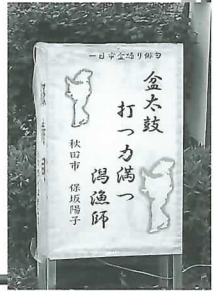 一日市盆踊り俳句
盆太鼓
打つ力満つ
潟漁師
秋田市 保坂陽子